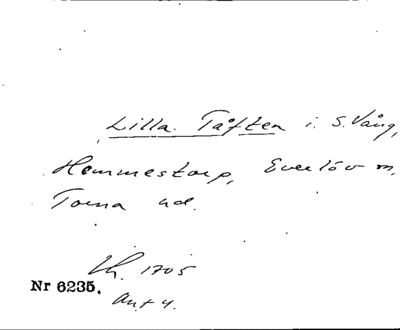 Lilla Tåften i S. Vång,
Hemmestorp, Everlöv m,
Torna hd.
Lh. 1705
Nr 6235.
Akt 4.